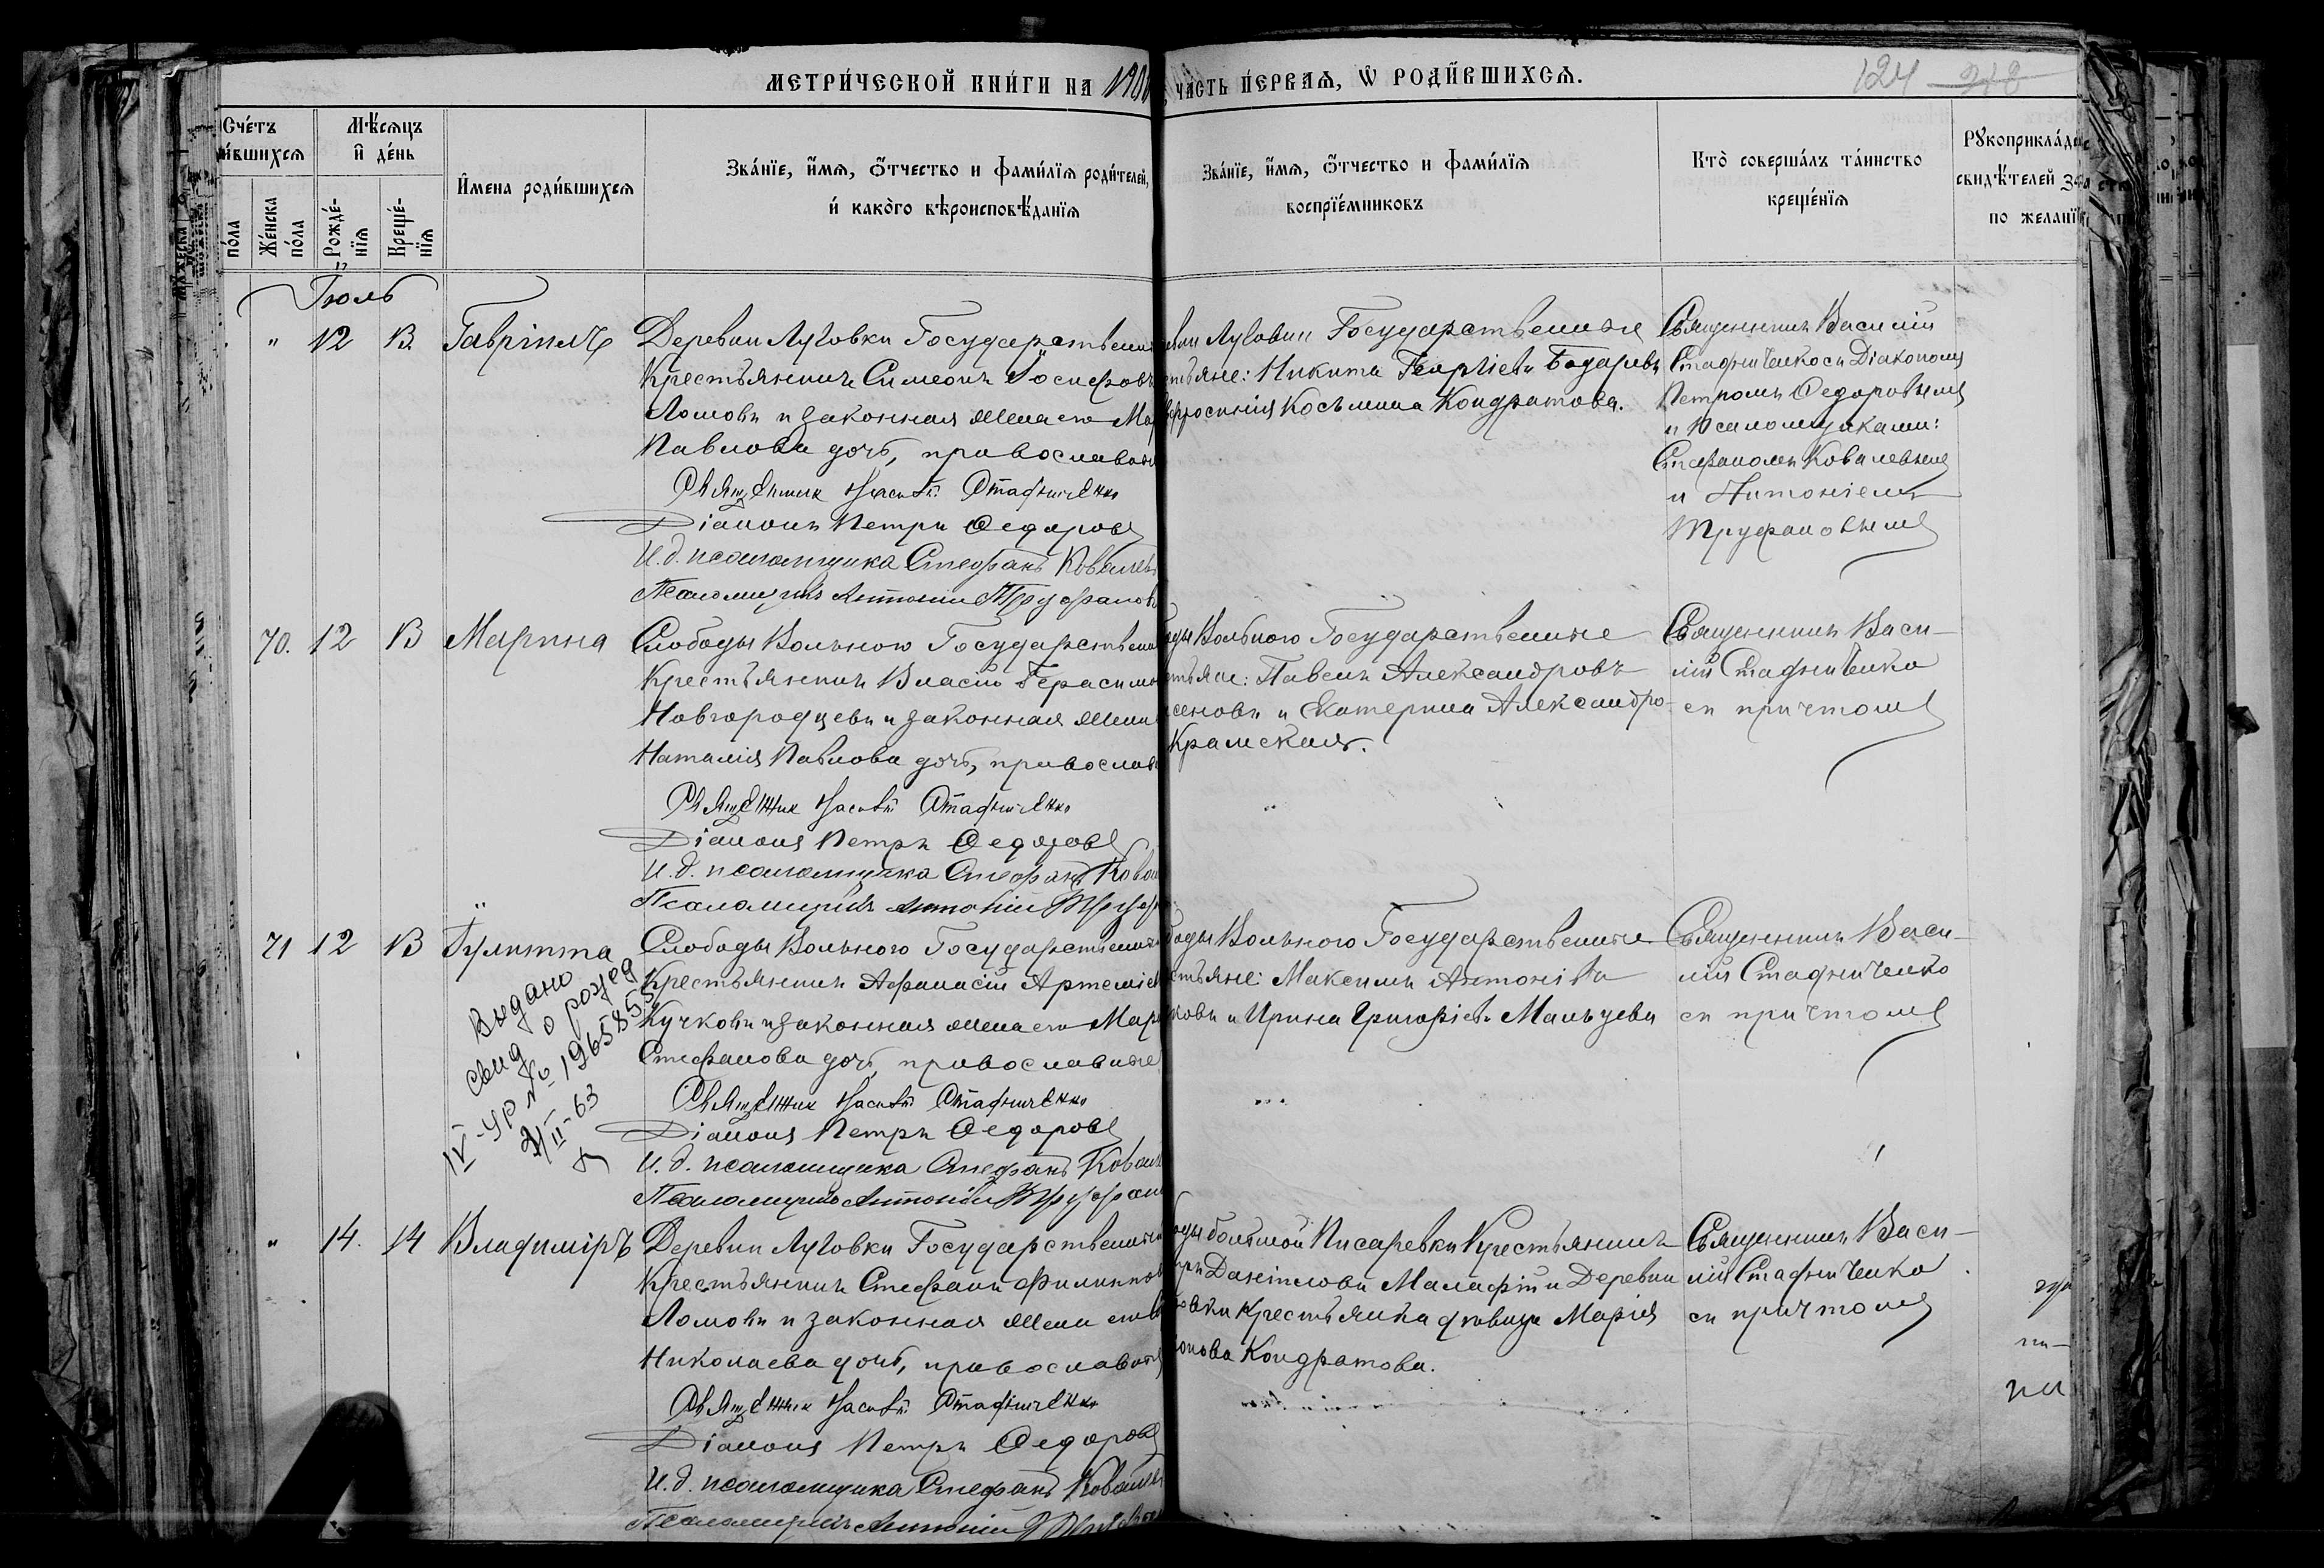 МЕТРИ́ЧЕСКОЙ КНИ́ГИ НА 190
ЧА́СТЬ ПЕ́РВАѦ, Ѡ҆ РОДИ́ВШИХСѦ.
124
Сче́тъ
и́вшихсѧ
Мѣ́сѧцъ
и҆ де́нь
И҆мена роди́вшихсѧ
Зва́нїе, и҆́мѧ, ѻ҆́тчество и фами́лїѧ роди́телей,
и҆ како́гѡ вѣроисповѣ́данїѧ
Зва́нїе, и҆́мѧ, ѻ҆́тчество и фами́лїѧ
воспрїе́мниковъ
Кто̀ соверша́лъ та́инство
креще́нїѧ
Рꙋкоприкла́д
свидѣ́телей за
по желані
по́ла
Же́нска
по́ла
Рожде́-
нїѧ
Креще́-
нїѧ
Іюль
" 12 13. Гавріилъ
Деревни Луговки Государствен
Крестьянинъ Симеонъ Іосифовъ
Ломовъ и законная жена его Мар
Павлова дочь, православн
Священник Василій Стафиченко
Діаконъ Петръ Ѳедоровъ
И.д. псаломщика Стефанъ Ковалев
Псаломщикъ Антоній Труфановъ
вни Луговки Государственные
стьяне: Никита Георгіевъ Бодаревъ
фросинія Косьмина Кондратова.
Священникъ Василій
Стафиченко съ Діакономъ
Петромъ Ѳедоровымъ
и Псаломщиками:
Стефаномъ Ковалевымъ
и Антоніемъ
Труфановымъ
70. 12 13 Марина
Слободы Вольного Государствен
Крестьянинъ Власій Герасимо
Новгородцевъ и законная жена
Наталія Павлова дочь, православ
Священник Василій Стафиченко
Діаконъ Петръ Ѳедоровъ
И.д. псаломщика Стефанъ Ковал
Псаломщикъ Антоній Труфа
ды Вольного Государственные
стьяне: Павелъ Александровъ
сеновъ и Екатерина Александро-
Крамская.
Священникъ Васи-
лій Стафиченко
съ причтомъ
71 12 13 Іулитта
Выдано
свид о рожд
IV-УР № 1965855
21/II-63
Слободы Вольного Государственн
Крестьянинъ Аѳанасій Артеміев
Кучковъ и законная жена его Мар
Стефанова дочь, православные
Священник Василій Стафиченко
Діаконъ Петръ Ѳедоровъ
И.д. псаломщика Стефанъ Ковал
Псаломщикъ Антоній Труфан
боды Вольного Государственные
стьяне: Максимъ Антоніевъ
ковъ и Ирина Григоріева Мальцева
Священникъ Васи-
лій Стафиченко
съ причтомъ
" 14. 14 Владиміръ
Деревни Луговки Государственн
Крестьянинъ Стефанъ Филиппов
Ломовъ и законная жена его
Николаева дочь, православн
Священник Василій Стафиченко
Діаконъ Петръ Ѳедоровъ
И.д. псаломщика Стефанъ Ковалев
Псаломщикъ Антоній
оды большой Писаревки Крестьянинъ
Даніиловъ Малафій и Деревни
овки Крестьянка дѣвица Марія
онова Кондратова.
Священникъ Васи-
лій Стафиченко
съ причтомъ